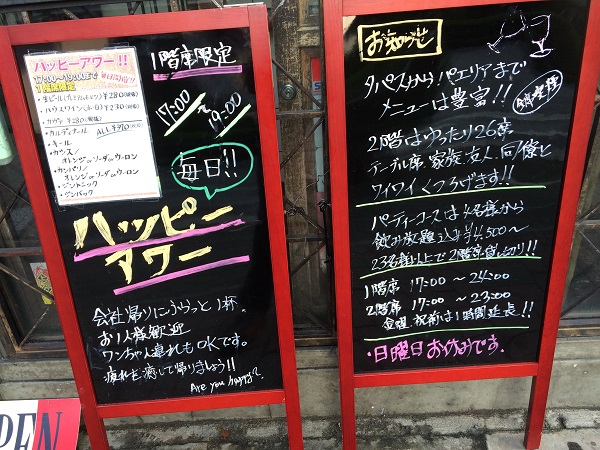 ハッピーアワー!!
17:00〜19:00まで 毎日開催!!
1階席限定
・生ビール(プレミアムモルツ) ¥280(税抜)
・ハウスワイン(赤・白) ¥230(税抜)
・カヴァ ¥280(税抜)
・カルディナール ALL ¥370(税抜)
・キール
・カシス/
オレンジorソーダorウーロン
・カンパリ/
オレンジorソーダorウーロン
・ジントニック
・ジンバック
1階席限定
17:00〜19:00
毎日!!
ハッピー
アワー
会社帰りにふらっと1杯。
お1人様歓迎
ワンちゃん連れもOKです。
疲れを癒して帰りましょう!!
Are you happy?
お知らせ
タパスから パエリアまで
メニューは豊富!!
2階はゆったり26席
テーブル席 家族、友人、同僚と
ワイワイくつろげます!!
パーティーコースは4名席から
飲み放題込み¥4,500〜
23名様以上で2階席貸し切り!!
1階席 17:00〜24:00
2階席 17:00〜23:00
金曜、祝前は1時間延長!!
・日曜日お休みです。
PEN